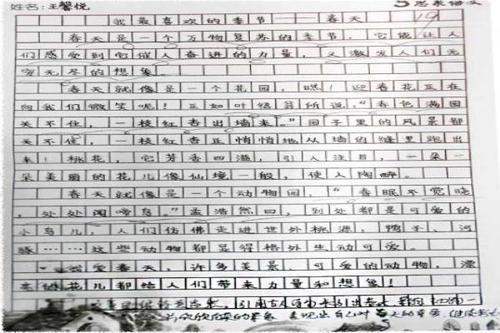 姓名:王馨悦
我最喜欢的季节——春天
19
春天是一个万物复苏的季节,它能让人
们感受到它催人奋进的力量,又激发人们无
穷无尽的想象。
春天就像是一个花园,嘿!迎春花正在
向我们微笑呢!正如叶绍翁所说,“春色满园
关不住,一枝红杏出墙来。”园子里的风景都
关不住,一枝红杏正悄悄地从墙的缝里跑出
来!桃花,它芳香四溢,引人注目,一朵一
朵美丽的花儿像仙境一般,使人陶醉。
春天就像是一个动物园,“春眠不觉晓
,处处闻啼鸟。”孟浩然曰,到处都是可爱的
小鸟儿,人们仿佛走进世外桃源,鸭子、河
豚……这些动物都显得格外生动可爱。
我爱春天,许多美景、可爱的动物,漂
亮的花儿都给人们带来力量和想象!